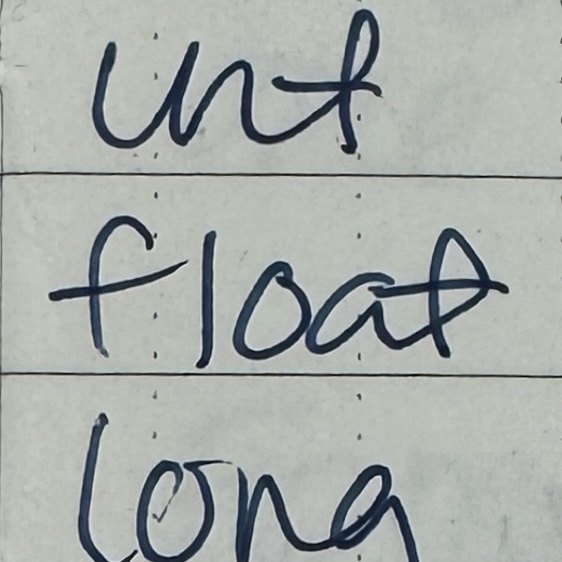 int
float
long